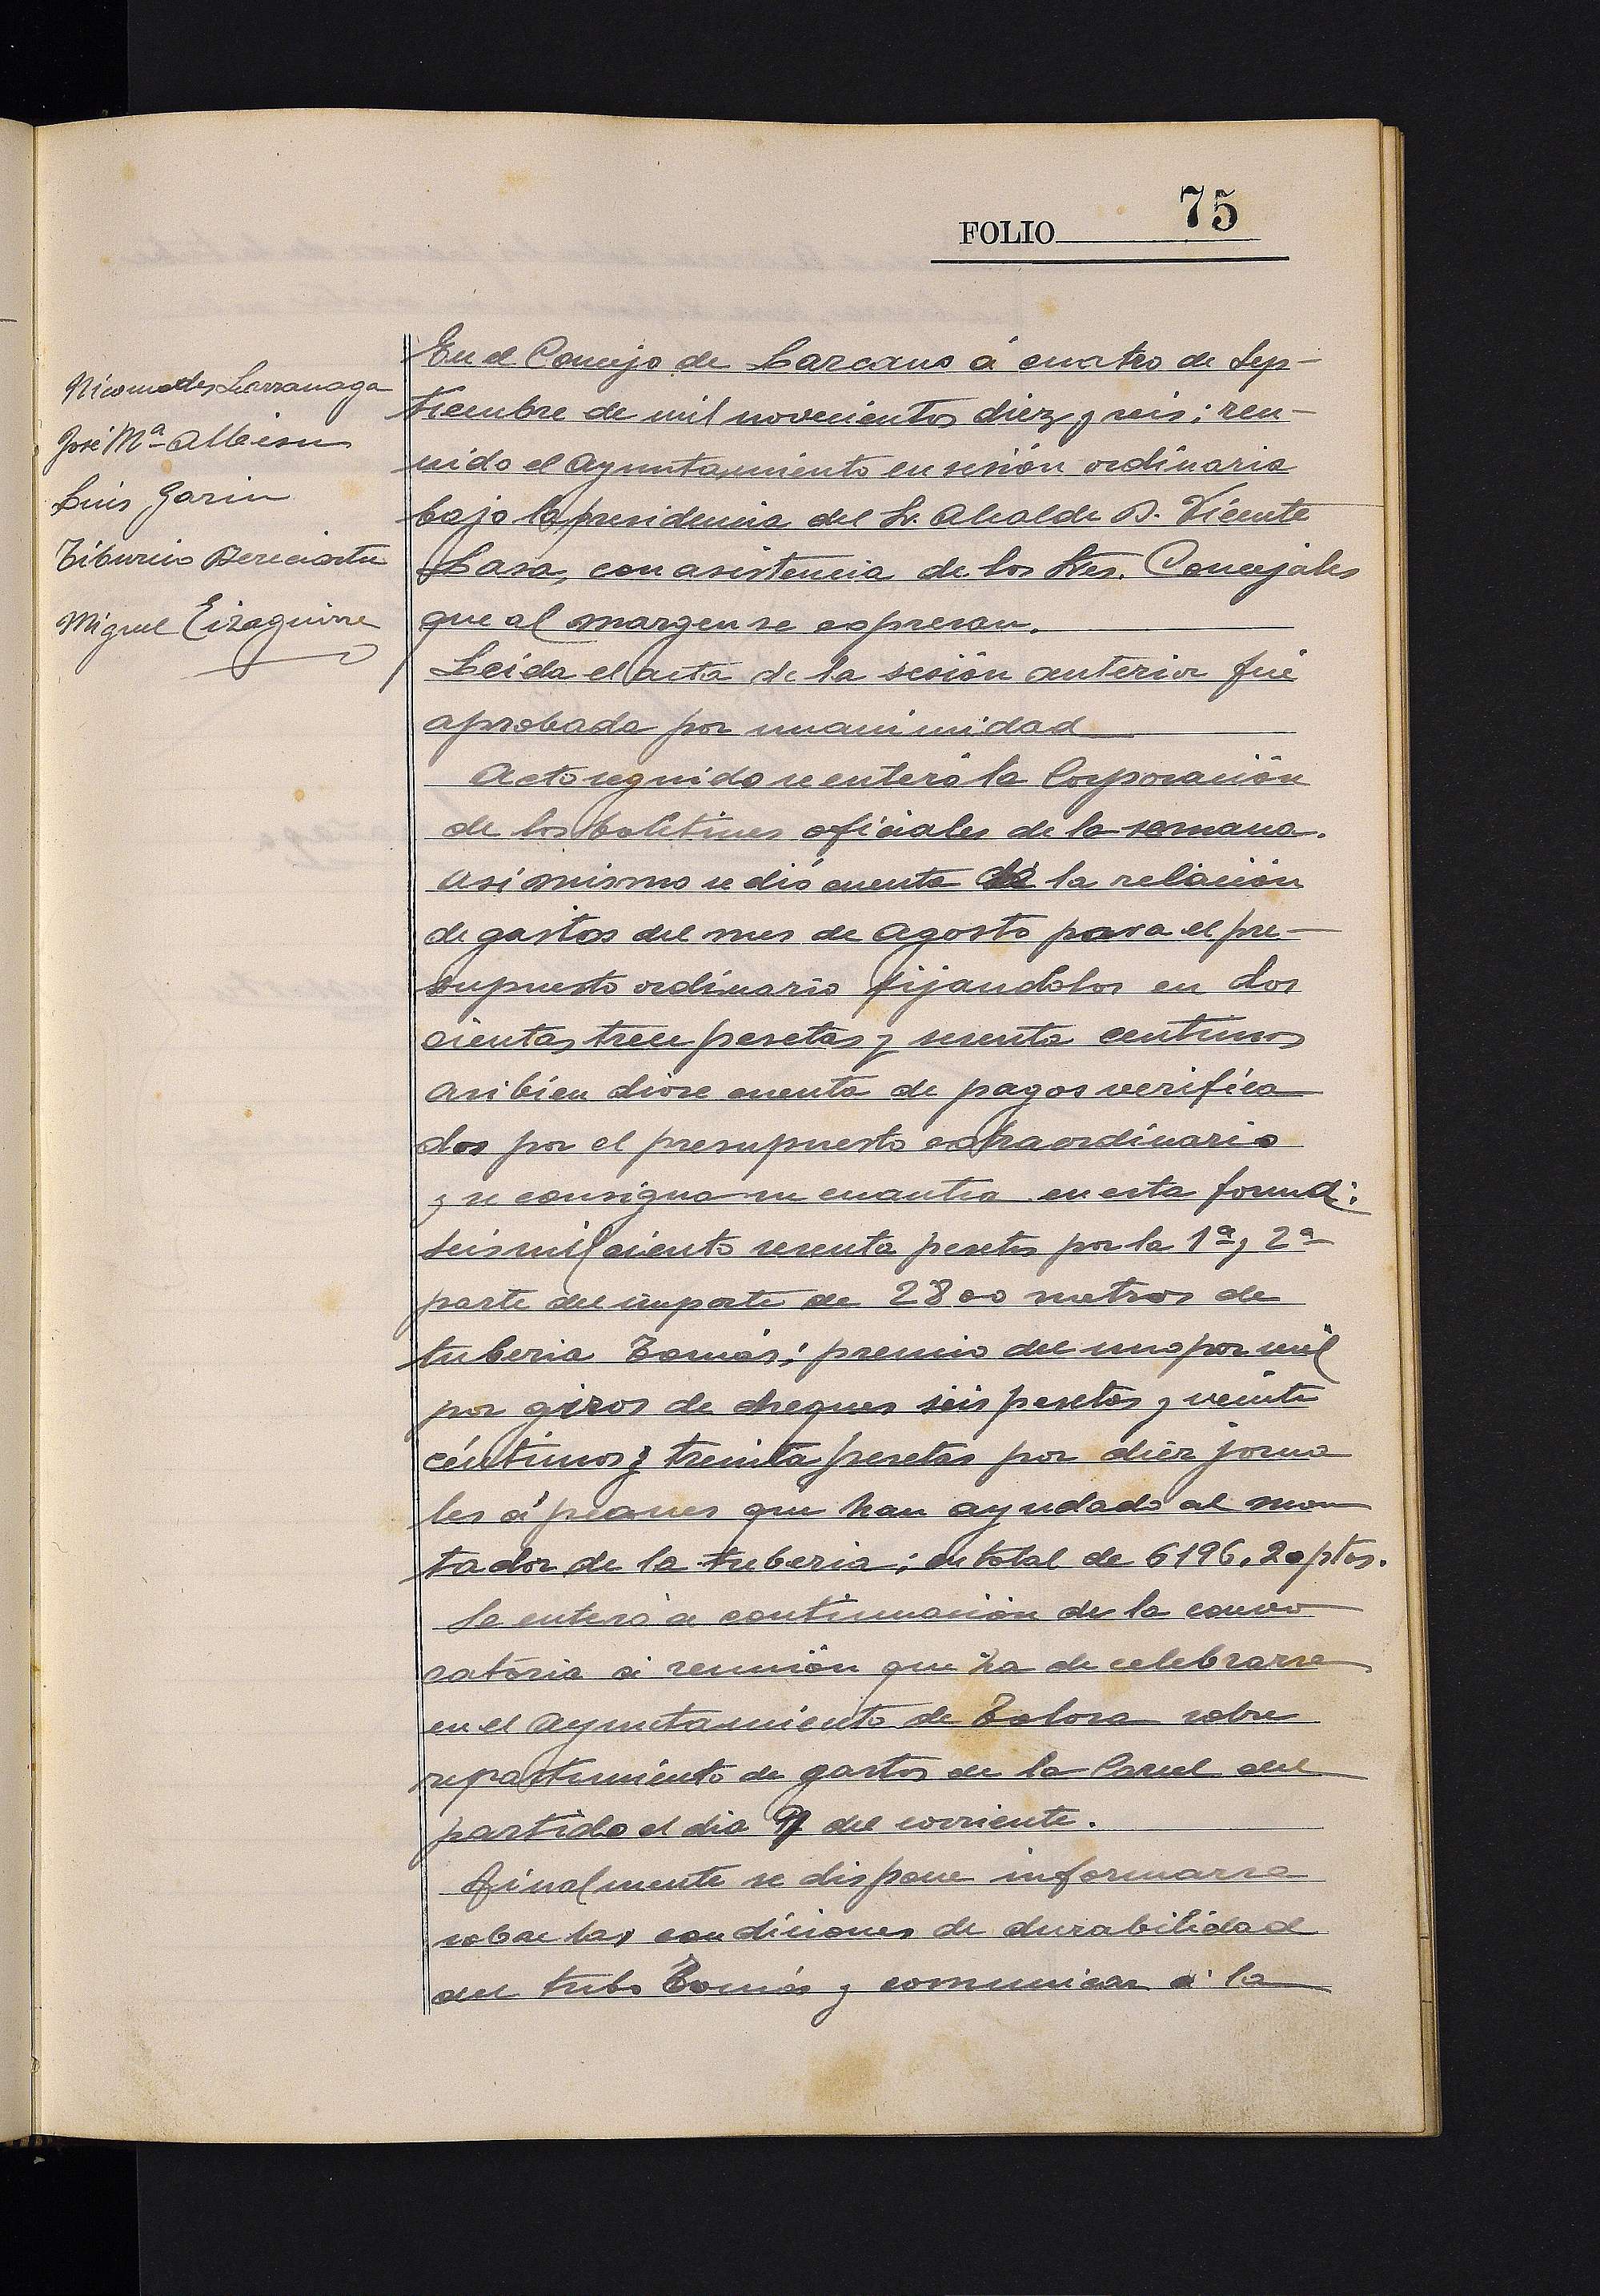 FOLIO 75
Nicomedes Larranaga
José Mª Albisu
Luis Garin
Tiburcio Bereciartu
Miguel Eizaguirre
En el Concejo de Lazcano á cuatro de Sep-
tiembre de mil novecientos diez y seis; reu-
nido el Ayuntamiento en sesión ordinaria
bajo la presidencia del Sr. Alcalde D. Vicente
Lasa, con asistencia de los Sres. Concejales
que al margen se expresan.
Leida el acta de la sesión anterior fué
aprobada por unanimidad
Acto seguido se enteró la Corporación
de los boletines oficiales de la semana.
Asi mismo se dió cuenta de la relación
de gastos del mes de Agosto para el pre-
supuesto ordinario fijandolos en dos
cientas trece pesetas y sesenta centimos
Asi bien diose cuenta de pagos verifica
dos por el presupuesto extraordinario
y se consigna su cuantia en esta forma:
Seis mil ciento sesenta pesetas por la 1ª y 2ª
parte del importe de 2800 metros de
tuberia Tomás; premio del uno por mil
por giros de cheques seis pesetas y veinte
céntimos y treinta pesetas por diez jorna
les á peones que han ayudado al mon
tador de la tuberia; en total de 6196,20 ptas.
Se enteró á continuación de la convo
catoria á reunión que ha de celebrarse
en el Ayuntamiento de Tolosa sobre
repartimiento de gastos de la Carcel del
partido el dia del corriente.
Finalmente se dispone informarse
sobre las condiciones de durabilidad
del tubo Tomás y comunicar á la